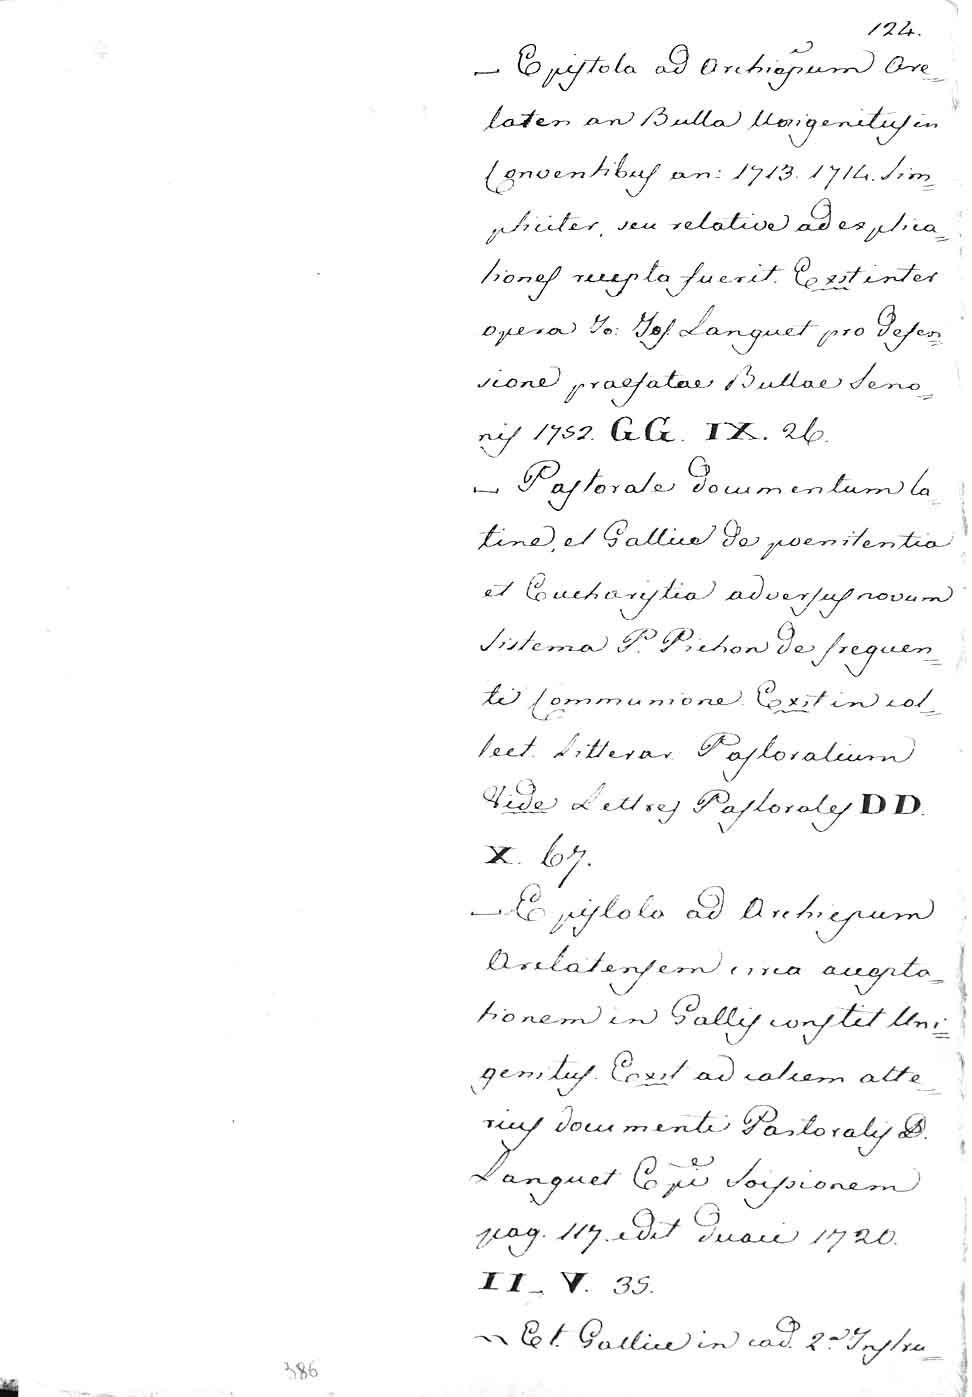 124.
— Epistola ad Archiepum Are=
laten an Bulla Unigenitus in
Conventibus an: 1713. 1714. Sim=
pliciter, seu relative ad explica=
tiones recepta fuerit. Exstinter
opera Jo: Jos. Languet pro defen=
sione praefatae Bullae Seno=
nis 1752. GG. IX. 26.
— Pastorale documentum la=
tine, et Gallice de poenitentia
et Eucharistia adversus novum
Sistema P. Pichon de frequen=
ti Communione. Exst in col=
lect. Litterar. Pastoralium
Vide Lettres Pastorales DD.
X. 67.
— Epistola ad Archiepum
Arelatensem circa accepta=
tionem in Galliis constit Uni=
genitus. Exst ad calcem alte=
rius documenti Pastoralis D.
Languet Epi Soissionem
pag. 117. edit Duaci 1720.
II_ V. 35.
~ Et. Gallice in ead. 2.a Instru=
386